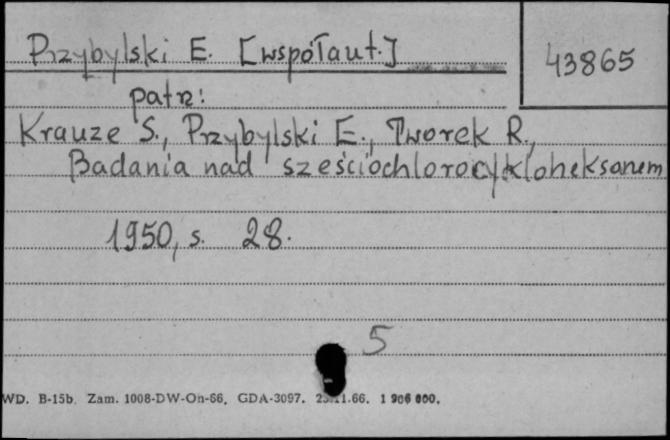 Przybylski E. [współaut.]
43865
patrz:
Krauze S., Przybylski E., Tworek R.,
Badania nad sześciochlorocykloheksanem
1950, s. 28.
5
WD. B-15b. Zam. 1008-DW-On-66. GDA-3097. .11.66. 1 906 000.